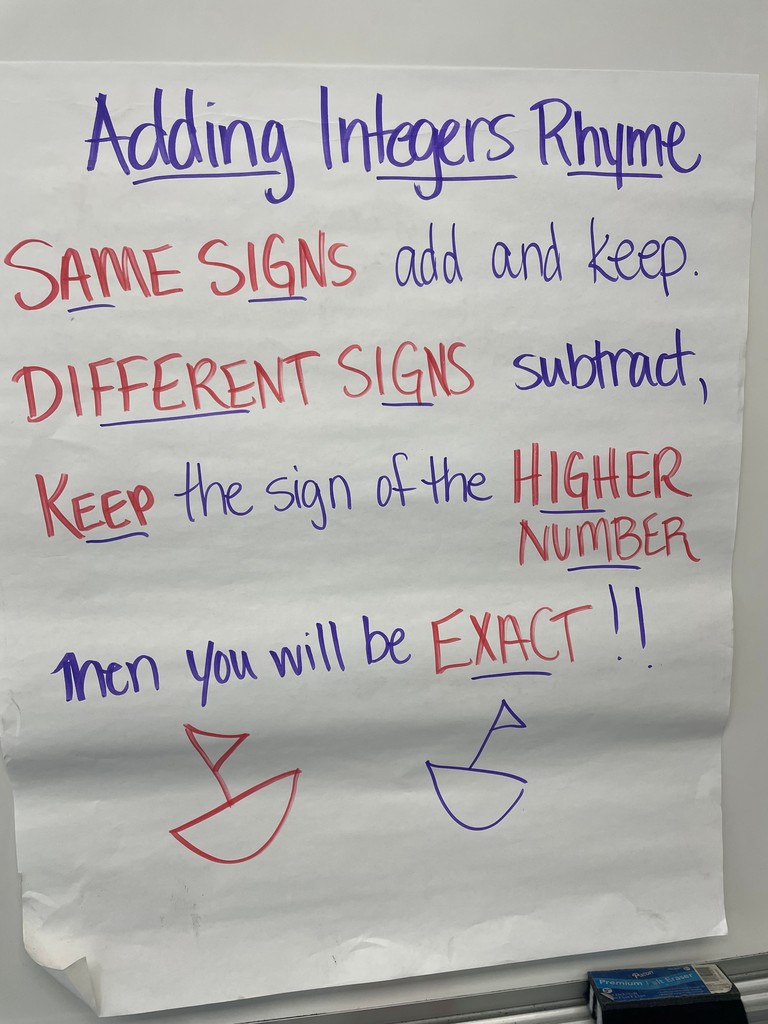 Adding Integers Rhyme
SAME SIGNS add and keep.
DIFFERENT SIGNS subtract,
KEEP the sign of the HIGHER
NUMBER
Then you will be EXACT!!
Premium Felt Eraser